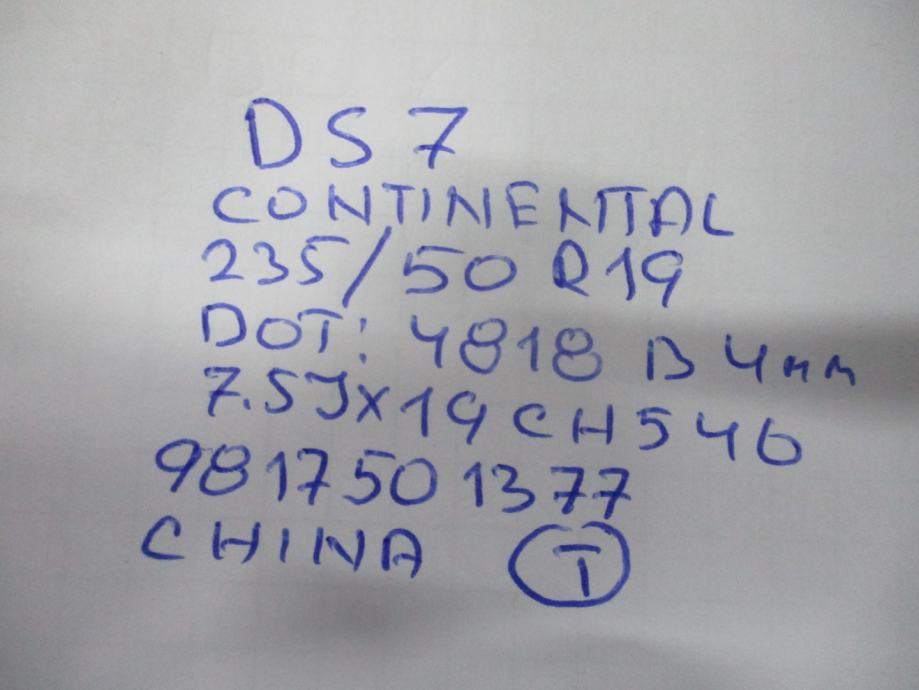 DS 7
CONTINENTAL
235/50 R19
DOT: 4818 B 4mm
7.5Jx19 CH546
9817501377
CHINA T